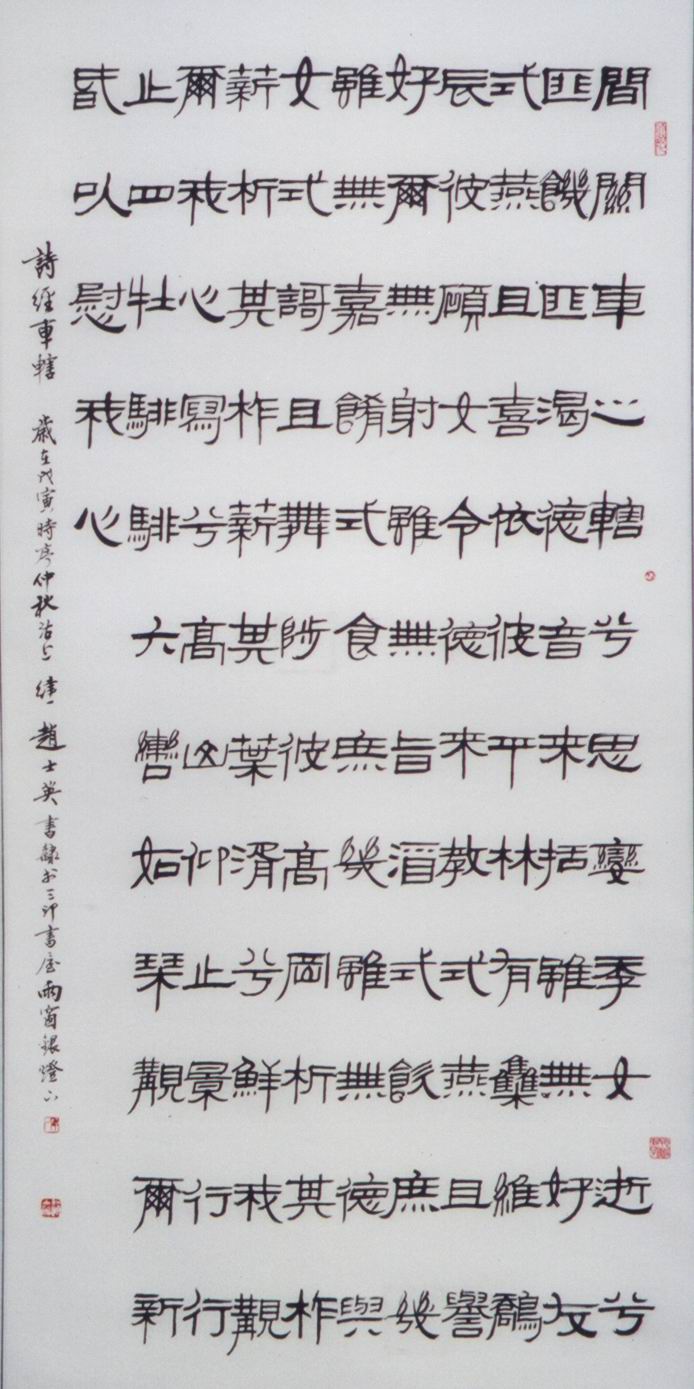 間關車之轄兮思孌季女逝兮
匪饑匪渴德音來括雖無好友
式燕且喜依彼平林有雧維鷮
辰彼碩女令德來教式燕且譽
好爾無射雖無旨酒式飲庶幾
雖無嘉餚式食庶幾雖無德與
女式謌且舞陟彼高岡析其柞
薪析其柞薪其葉湑兮鮮我覯
爾我心寫兮高山仰止景行行
止四牡騑騑六轡如琴覯爾新
昏以慰我心
詩經車轄 歲在戊寅時序仲秋沽上緯一趙士英書隸於三印書屋雨窗銀燈下